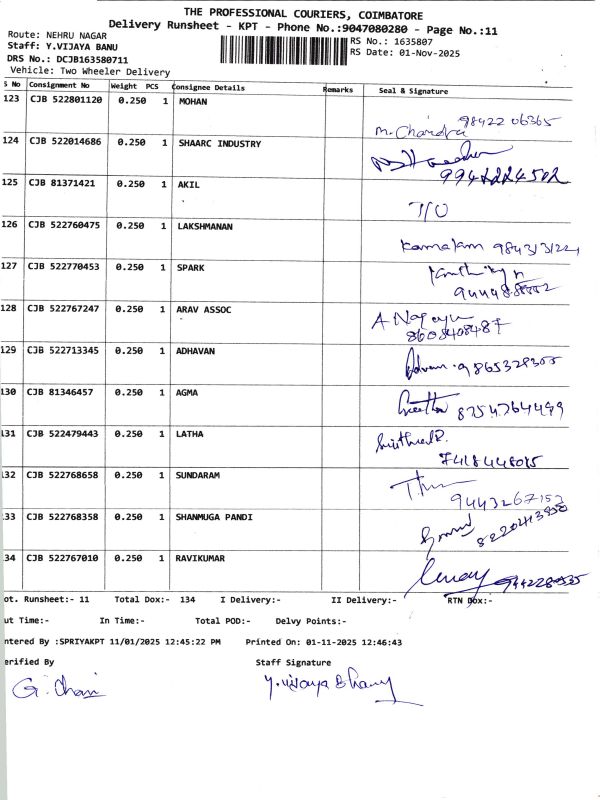 THE PROFESSIONAL COURIERS, COIMBATORE
Delivery Runsheet - KPT - Phone No.:9047080280 - Page No.:11
Route: NEHRU NAGAR
RS No.: 1635807
Staff: Y.VIJAYA BANU
RS Date: 01-Nov-2025
DRS No.: DCJB163580711
Vehicle: Two Wheeler Delivery
S No Consignment No Weight PCS Consignee Details Remarks Seal & Signature
123 CJB 522801120 0.250 1 MOHAN
M. Chandra 98422 06365
124 CJB 522014686 0.250 1 SHAARC INDUSTRY
125 CJB 81371421 0.250 1 AKIL
T/O
126 CJB 522760475 0.250 1 LAKSHMANAN
127 CJB 522770453 0.250 1 SPARK
128 CJB 522767247 0.250 1 ARAV ASSOC
8608408487
129 CJB 522713345 0.250 1 ADHAVAN
130 CJB 81346457 0.250 1 AGMA
Geetha 8754764499
131 CJB 522479443 0.250 1 LATHA
132 CJB 522768658 0.250 1 SUNDARAM
9443267152
133 CJB 522768358 0.250 1 SHANMUGA PANDI
134 CJB 522767010 0.250 1 RAVIKUMAR
ot. Runsheet:- 11 Total Dox:- 134 I Delivery:- II Delivery:- RTN Dox:-
ut Time:- In Time:- Total POD:- Delvy Points:-
ntered By :SPRIYAKPT 11/01/2025 12:45:22 PM Printed On: 01-11-2025 12:46:43
erified By Staff Signature
Y. Vijaya Bhanu